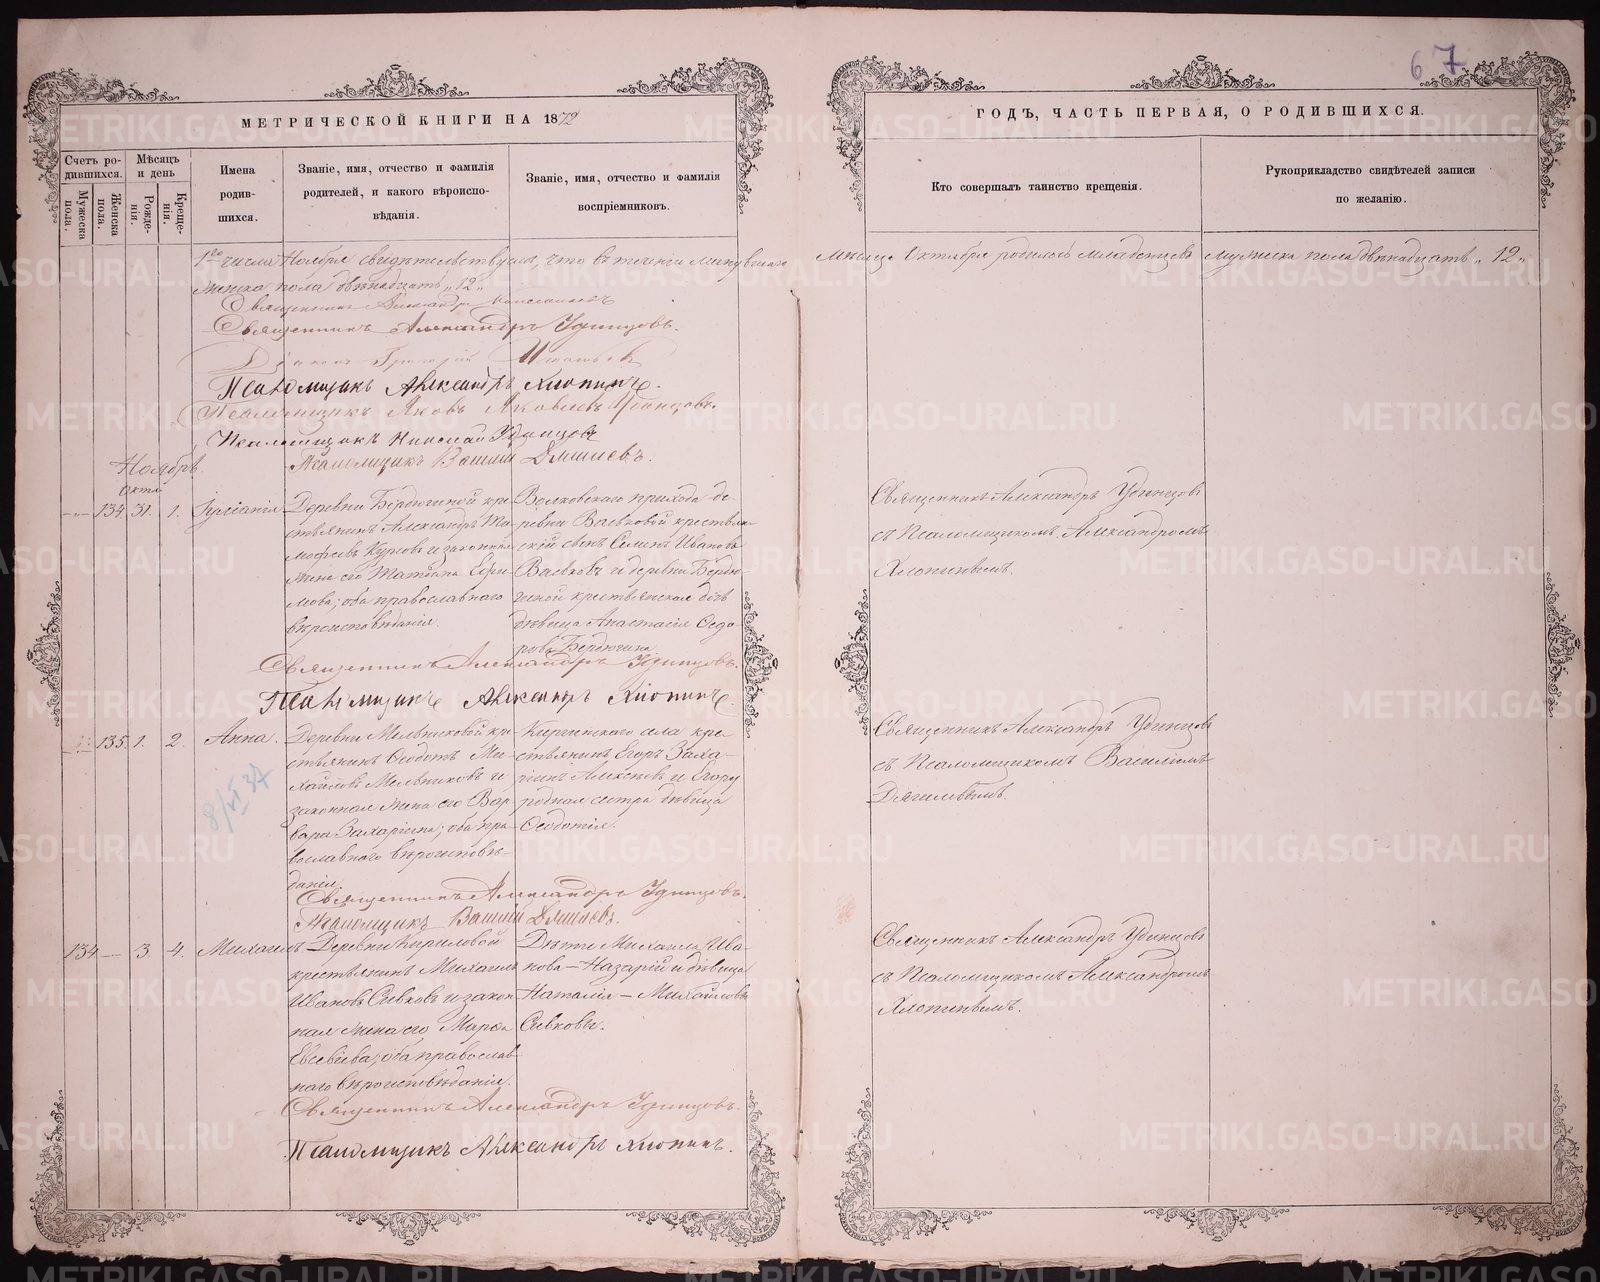 67
МЕТРИЧЕСКОЙ КНИГИ НА 1872
ГОДЪ, ЧАСТЬ ПЕРВАЯ, О РОДИВШИХСЯ.
Счетъ родившихся.
Мужеска пола.
Женска пола.
Мѣсяцъ и день
Рожденія.
Крещенія.
Имена родившихся.
Званіе, имя, отчество и фамилія родителей, и какого вѣроисповѣданія.
Званіе, имя, отчество и фамилія воспріемниковъ.
Кто совершалъ таинство крещенія.
Рукоприкладство свидѣтелей записи по желанію.
1го числа Ноября свидѣтельствуемъ, что въ теченіи
мѣсяца Октября родилось младенцевъ мужеска пола двѣнадцать „12„
женска пола двѣнадцать „12„
Священникъ Александръ
Священникъ Александръ Удинцовъ.
Діаконъ Григорій
Псаломщикъ Александръ Хлопинъ.
Псаломщикъ Яковъ Яковлевъ
Псаломщикъ Николай Удинцовъ
Псаломщикъ Василій
Ноябрь
Окт.
134 31. 1.
Деревни Бердюгиной кре-
стьянинъ Александръ Ти-
мофеевъ и законная
жена его Татьяна Ефи-
мова; оба православнаго
вѣроисповѣданія.
Волковскаго прихода де-
ревни крестьян-
скій сынъ Ивановъ
и деревни Бердю-
гиной крестьянская дочь
дѣвица Анастасія Федо-
рова Бердюгина
Священникъ Александръ Удинцовъ
съ Псаломщикомъ Александромъ
Хлопинымъ.
Священникъ Александръ Удинцовъ.
Псаломщикъ Александръ Хлопинъ.
135. 1. 2. Анна.
Деревни Мельниковой кре-
стьянинъ Ѳедотъ Ми-
хайловъ Мельниковъ и
законная жена его Вар-
вара Захаріина; оба пра-
вославнаго вѣроисповѣ-
данія.
Киргинскаго села кре-
стьянинъ Егоръ Заха-
ріинъ Алексѣевъ и Егору
родная сестра дѣвица
Ѳедотія.
Священникъ Александръ Удинцовъ
съ Псаломщикомъ Василіемъ
8/VI 37
Священникъ Александръ Удинцовъ.
Псаломщикъ Василій
134 — 3. 4. Михаилъ
Деревни Кириловой
крестьянинъ Михаилъ
Ивановъ Сивковъ и закон-
ная жена его Марѳа
Евсевіева; оба православ-
наго вѣроисповѣданія.
Дѣти Михаила Ива-
нова — Назарій и дѣвица
Наталія — Михайловы
Сивковы.
Священникъ Александръ Удинцовъ
съ Псаломщикомъ Александромъ
Хлопинымъ.
Священникъ Александръ Удинцовъ.
Псаломщикъ Александръ Хлопинъ.
METRIKI.GASO-URAL.RU